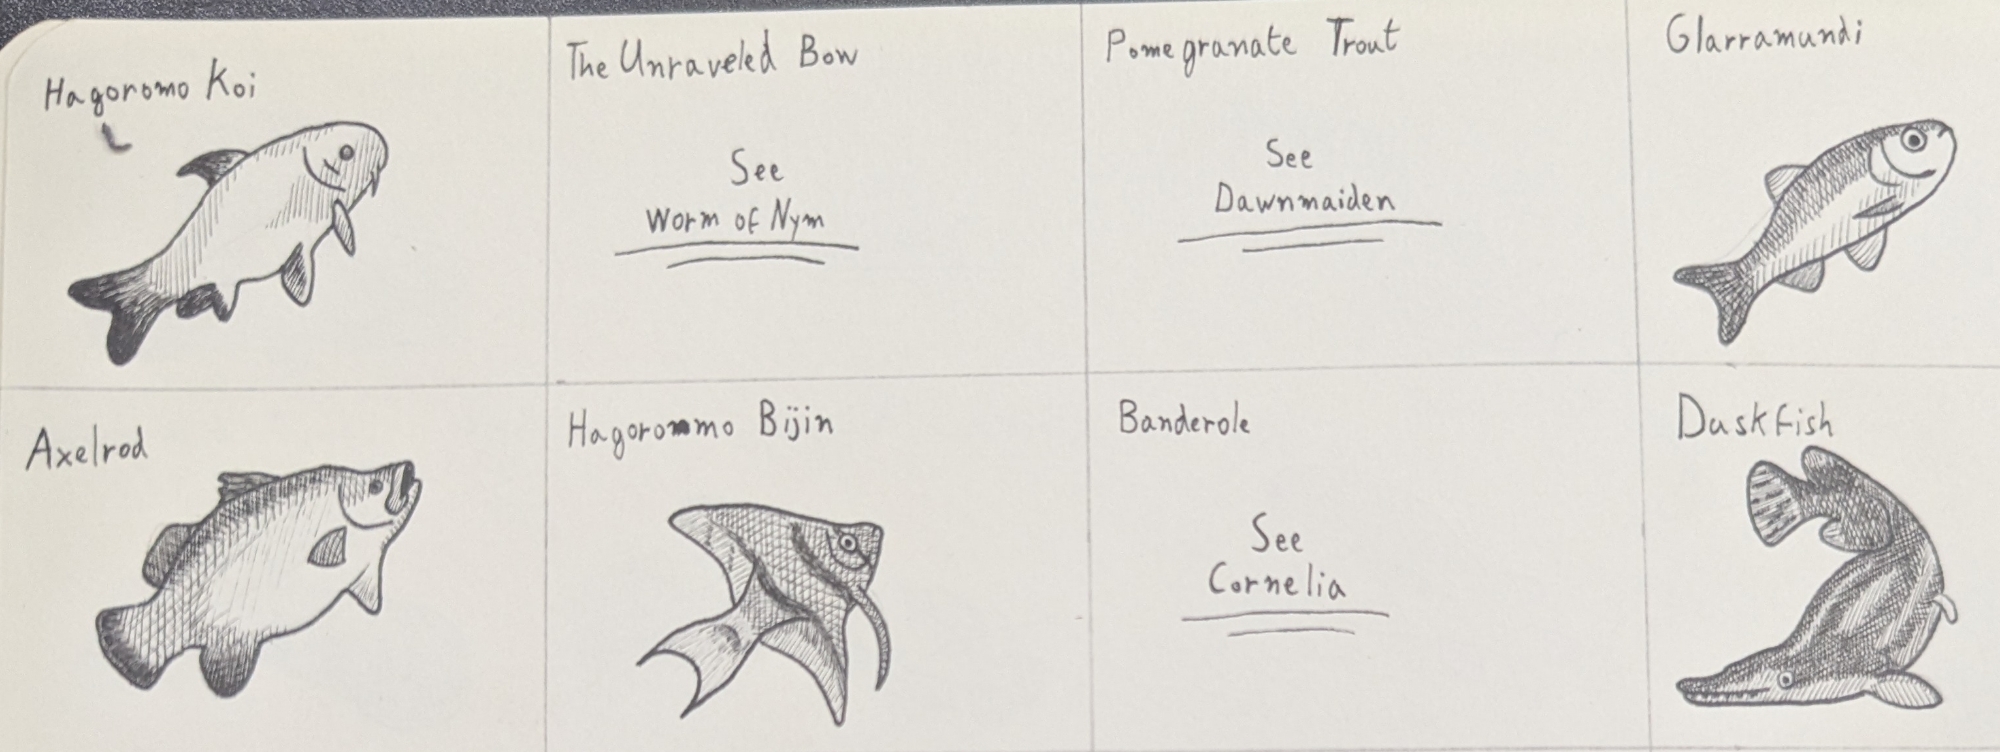 Hagoromo Koi
The Unraveled Bow
See
Worm of Nym
Pomegranate Trout
See
Dawnmaiden
Glarramundi
Axelrod
Hagorommo Bijin
Banderole
See
Cornelia
Duskfish